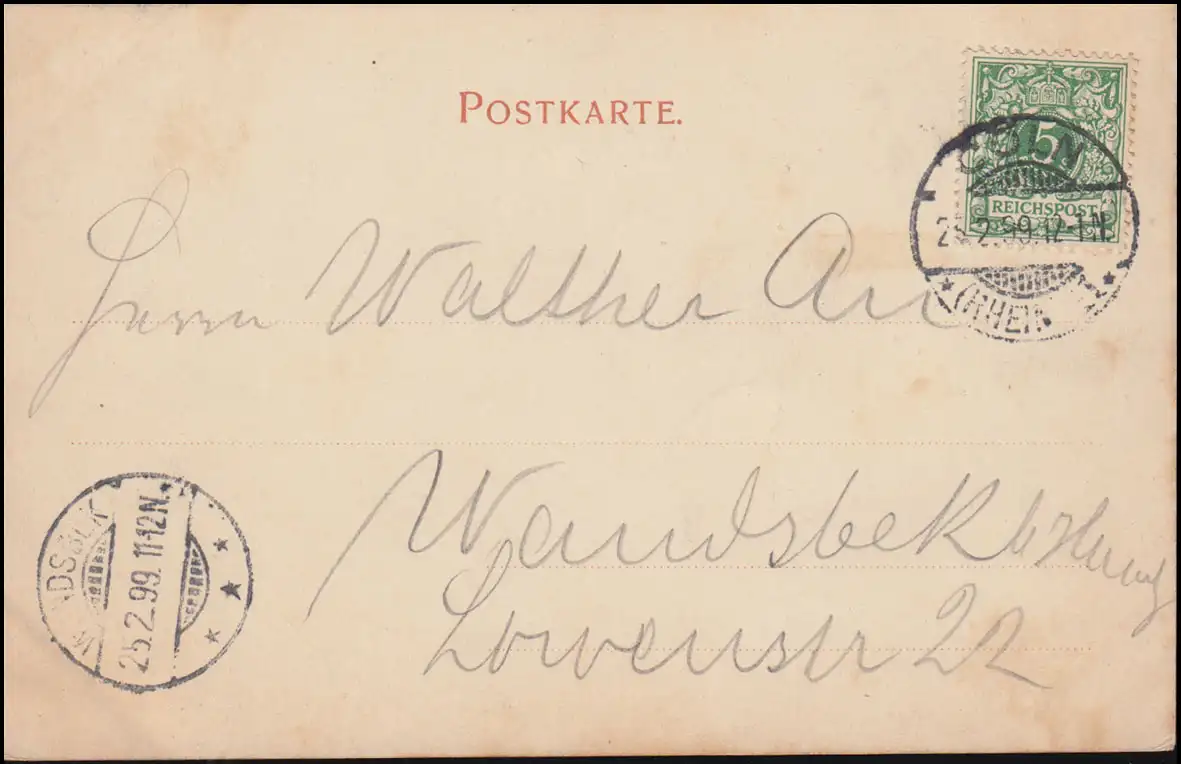 POSTKARTE.
5
REICHSPOST
CÖLN
25.2.99.12-1N.
(RHEIN)
Herrn Walther Arn
Wandsbek b/Hbg
Löwenstr 22
WANDSBEK
25.2.99.11-12N.